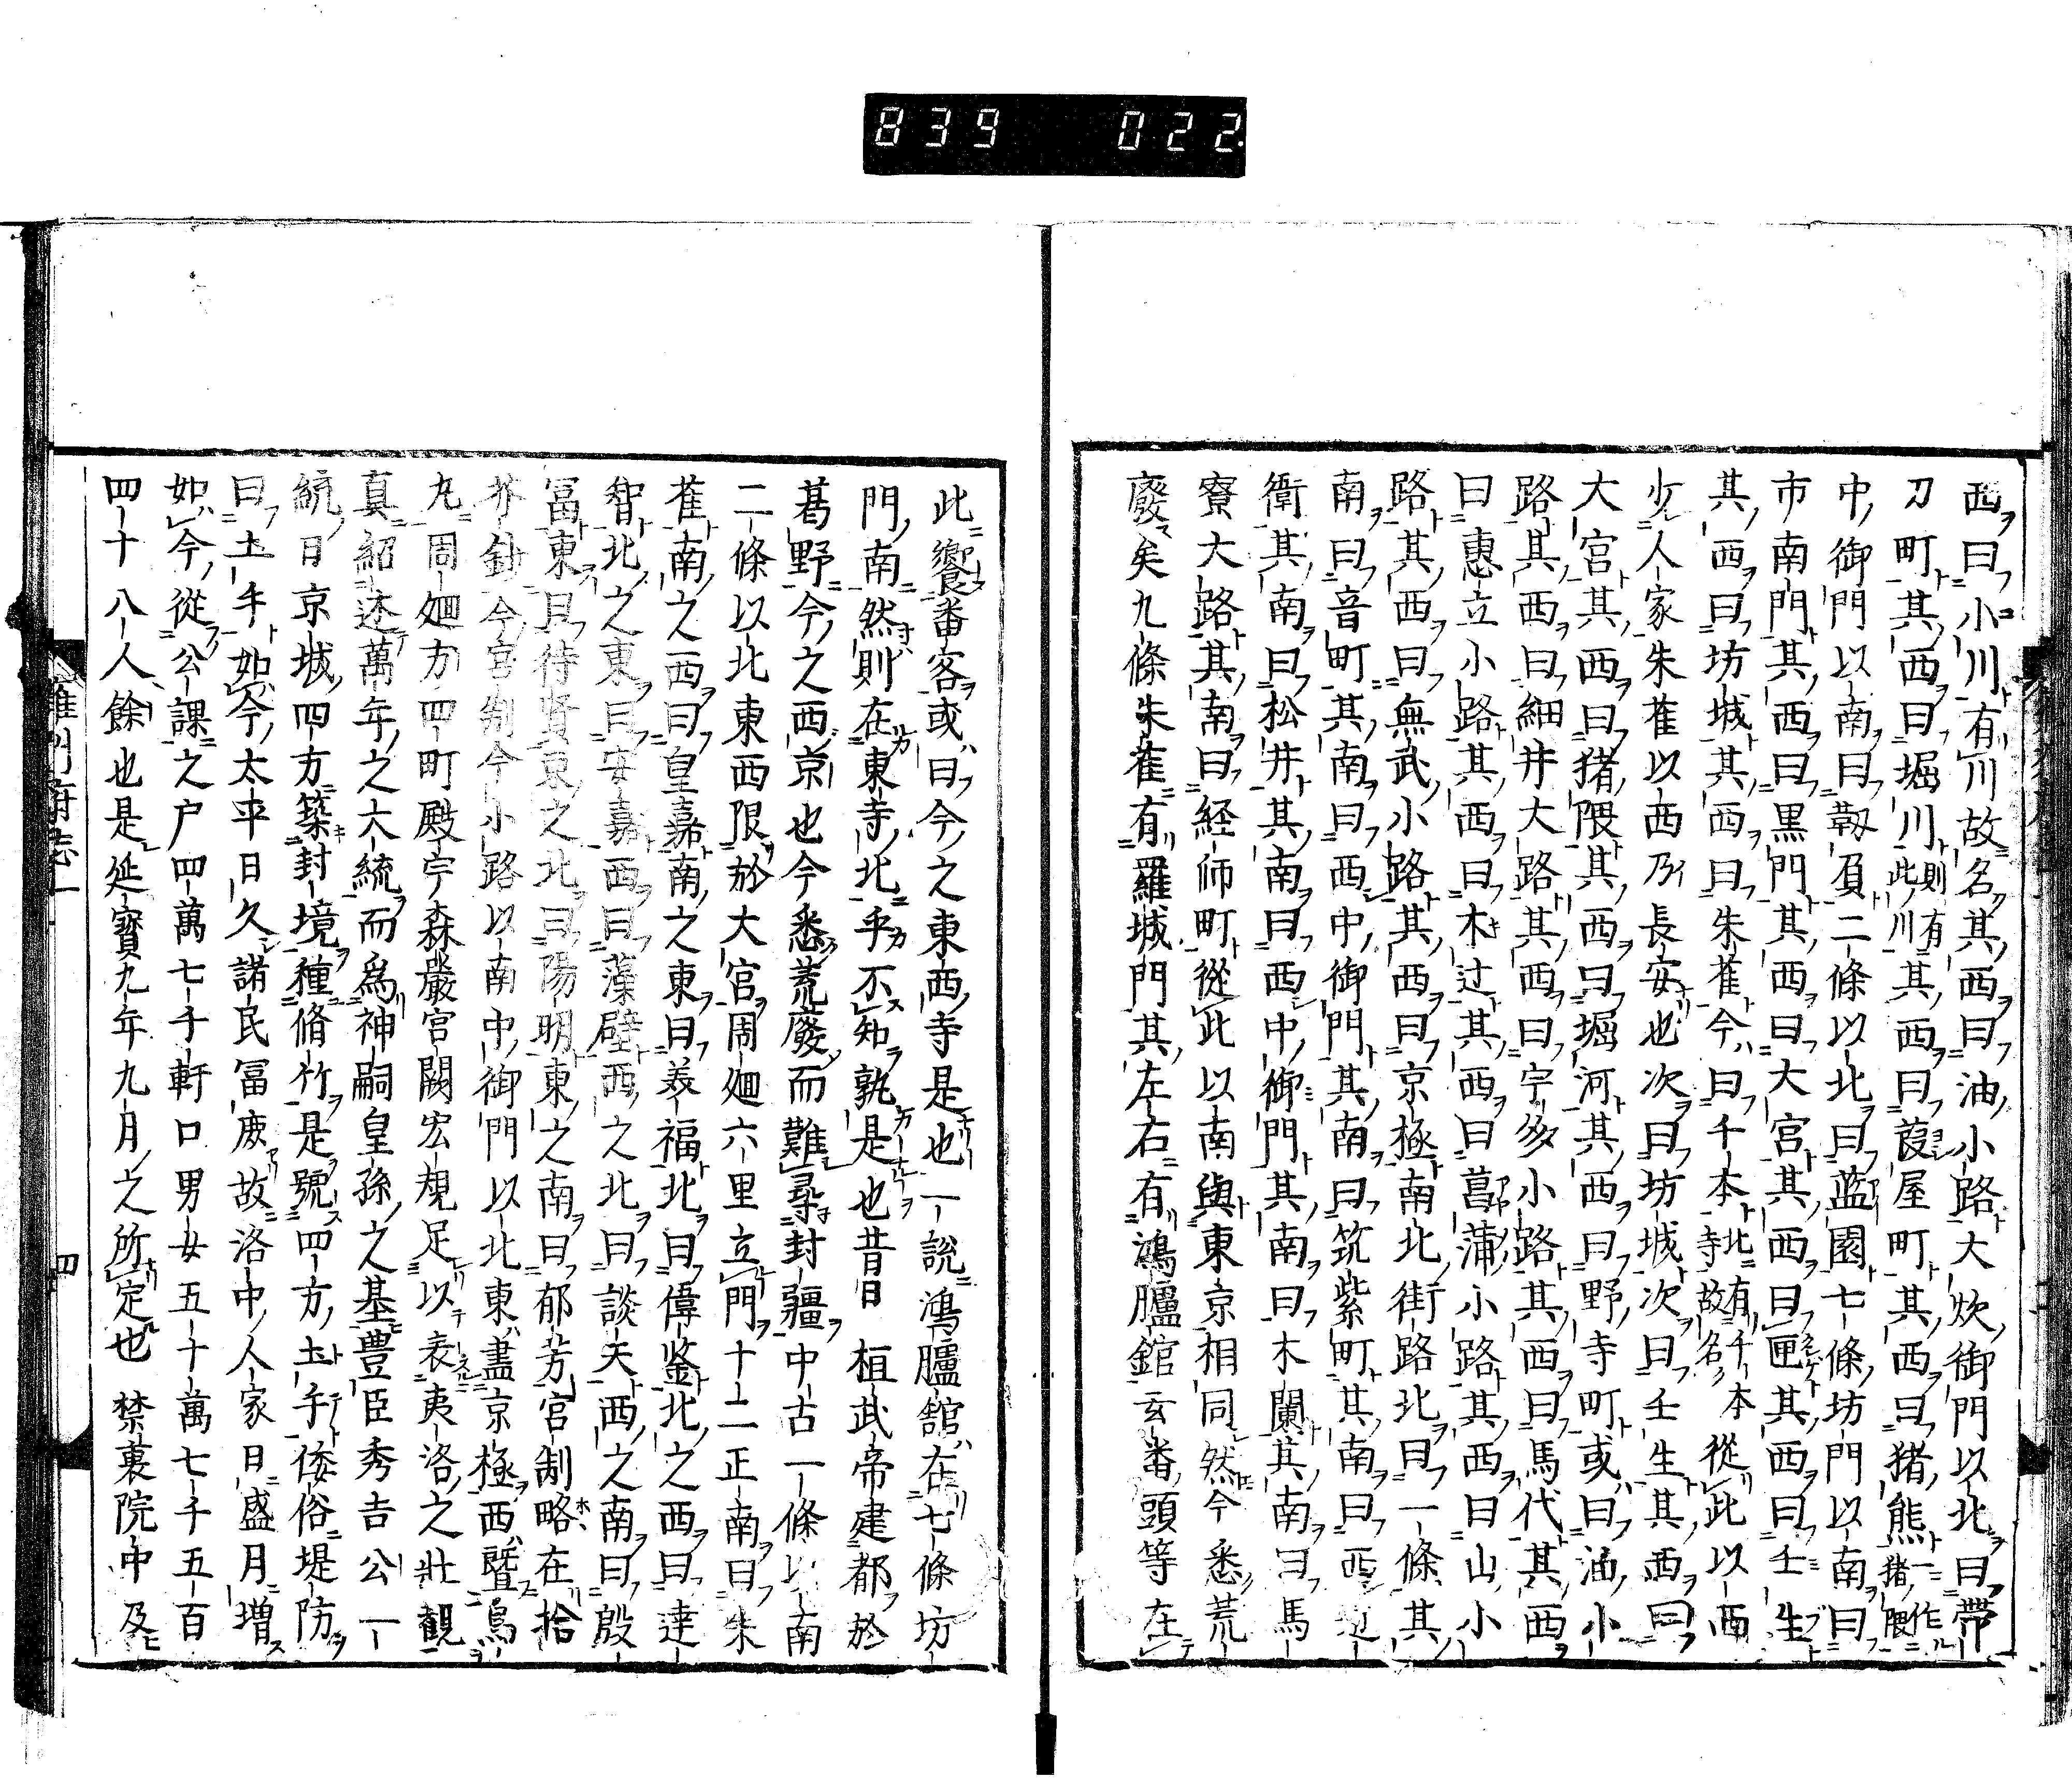 839 022
西曰小川有川故名其西曰油小路大炊御門以北曰帶
刀町其西曰堀川此川則有其西曰葭屋町其西曰猪熊猪一作隈
中御門以南曰靱負二條以北曰藍園七條坊門以南曰
市南門其西曰黒門其西曰大宮其西曰匣其西曰壬生
其西曰坊城其西曰朱雀今曰千本北有千本寺故名從此以西
少人家朱雀以西乃長安也次曰坊城次曰壬生其西曰
大宮其西曰猪隈其西曰堀河其西曰野寺町或曰油小
路其西曰細井大路其西曰宇多小路其西曰馬代其西
曰惠立小路其西曰木辻其西曰菖蒲小路其西曰山小
路其西曰無武小路其西曰京極南北街路北曰一條其
南曰音町其南曰西中御門其南曰筑紫町其南曰西近
衛其南曰松井其南曰西中御門其南曰木闌其南曰馬
寮大路其南曰経師町從此以南與東京相同然今悉荒
廢矣九條朱雀有羅城門其左右有鴻臚館玄番頭等在
此饗番客或曰今之東西寺是也一說鴻臚舘在七條坊
門南然則在東寺北乎不知孰是也昔日桓武帝建都於
葛野今之西京也今悉荒廢而難尋封疆中古一條以南
二條以北東西限於大宮周廻六里立門十二正南曰朱
雀南之西曰皇嘉南之東曰美福北曰偉鑒北之西曰達
智北之東曰安嘉西曰藻壁西之北曰談天西之南曰殷
冨東曰待賢東之北曰陽明東之南曰郁芳宮制略在拾
芥鈔今宮制今小路以南中御門以北東盡京極西曁烏
丸周廻方四町殿宇森嚴宮闕宏規足以表夷洛之壯觀
真紹述萬年之大統而爲神嗣皇孫之基豊臣秀吉公一
統日京城四方築封境種脩竹是號四方土手倭俗堤防
曰土手如今太平日久諸民冨庻故洛中人家日盛月增
如今從公課之戸四萬七千軒口男女五十萬七千五百
四十八人餘也是延寶九年九月之所定也禁裏院中及
雍州府志一
四